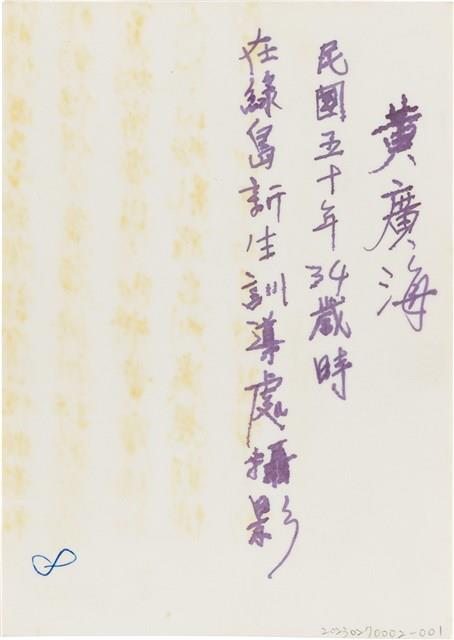 黃廣海
民國五十年34歲時
在綠島新生訓導處攝影
20230270002-001